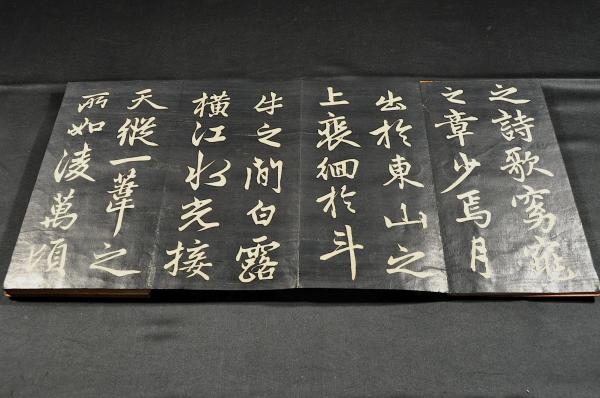 之詩歌窈窕
之章少焉月
出於東山之
上裵徊於斗
牛之間白露
橫江水光接
天縱一葦之
所如淩萬頃